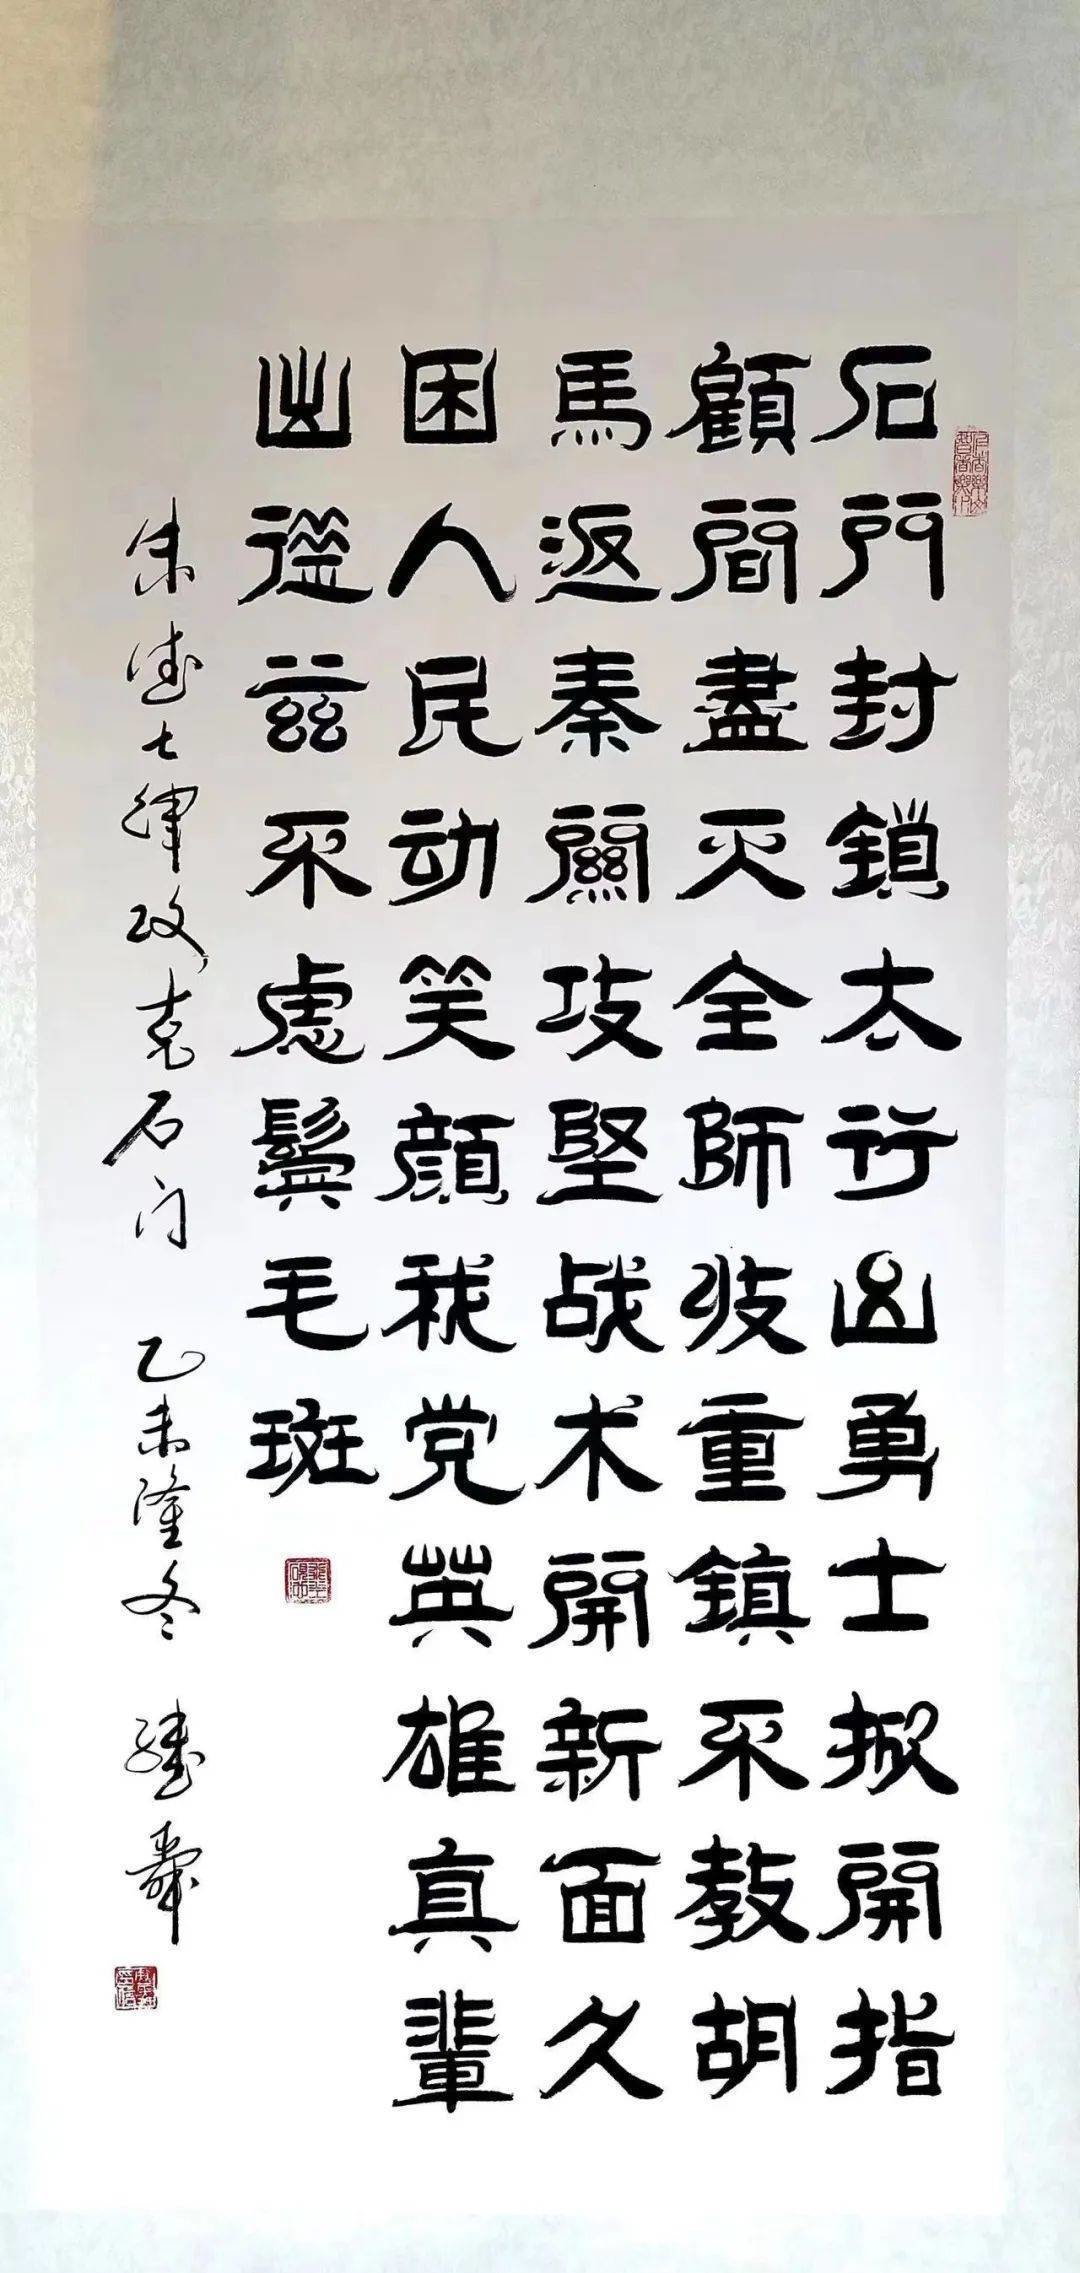 石門封鎖太行山勇士掀開指
顧間盡灭全師收重鎮不教胡
馬返秦關攻堅战术開新面久
困人民动笑顏我党英雄真輩
出從兹不慮鬢毛斑
朱德七律攻克石门 乙未隆冬